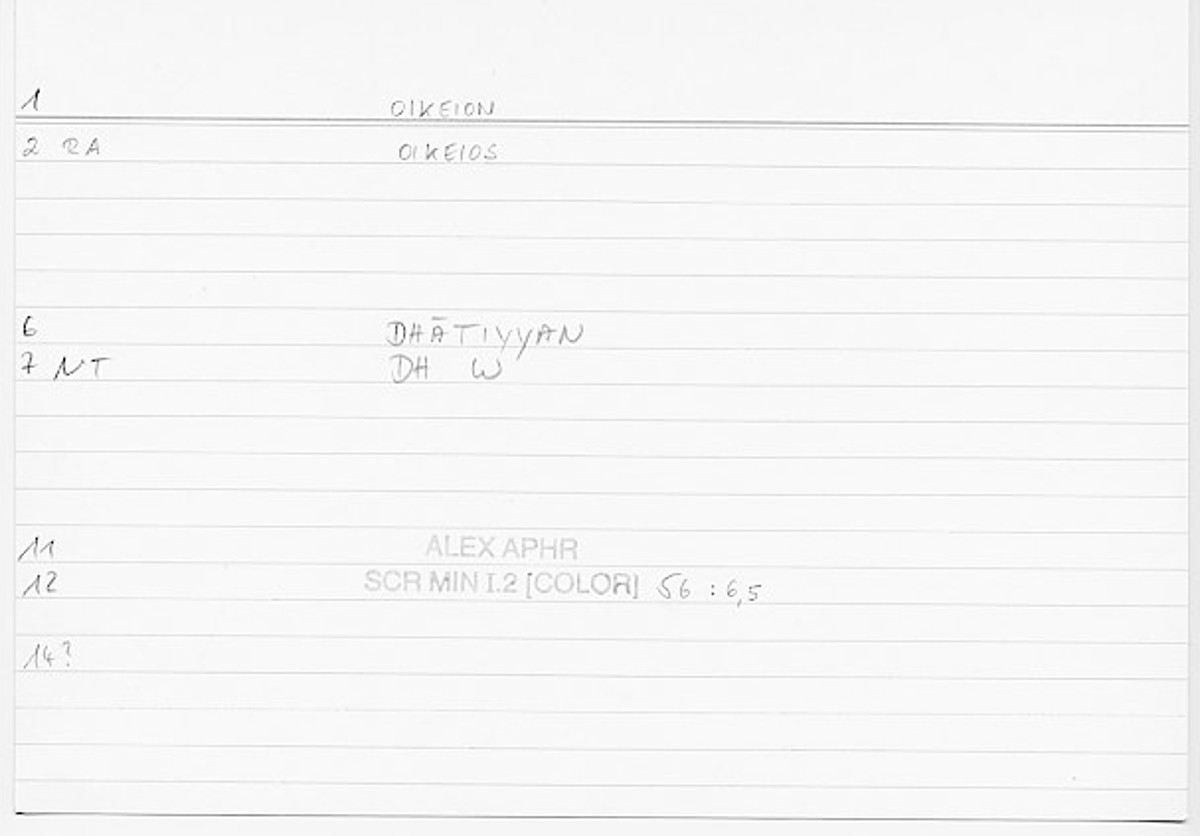 1 OIKEION
2 RA OIKEIOS
6 DHĀTIYYAN
7 NT DH W
11 ALEX APHR
12 SCR MIN I.2 [COLOR] 56 : 6,5
14?